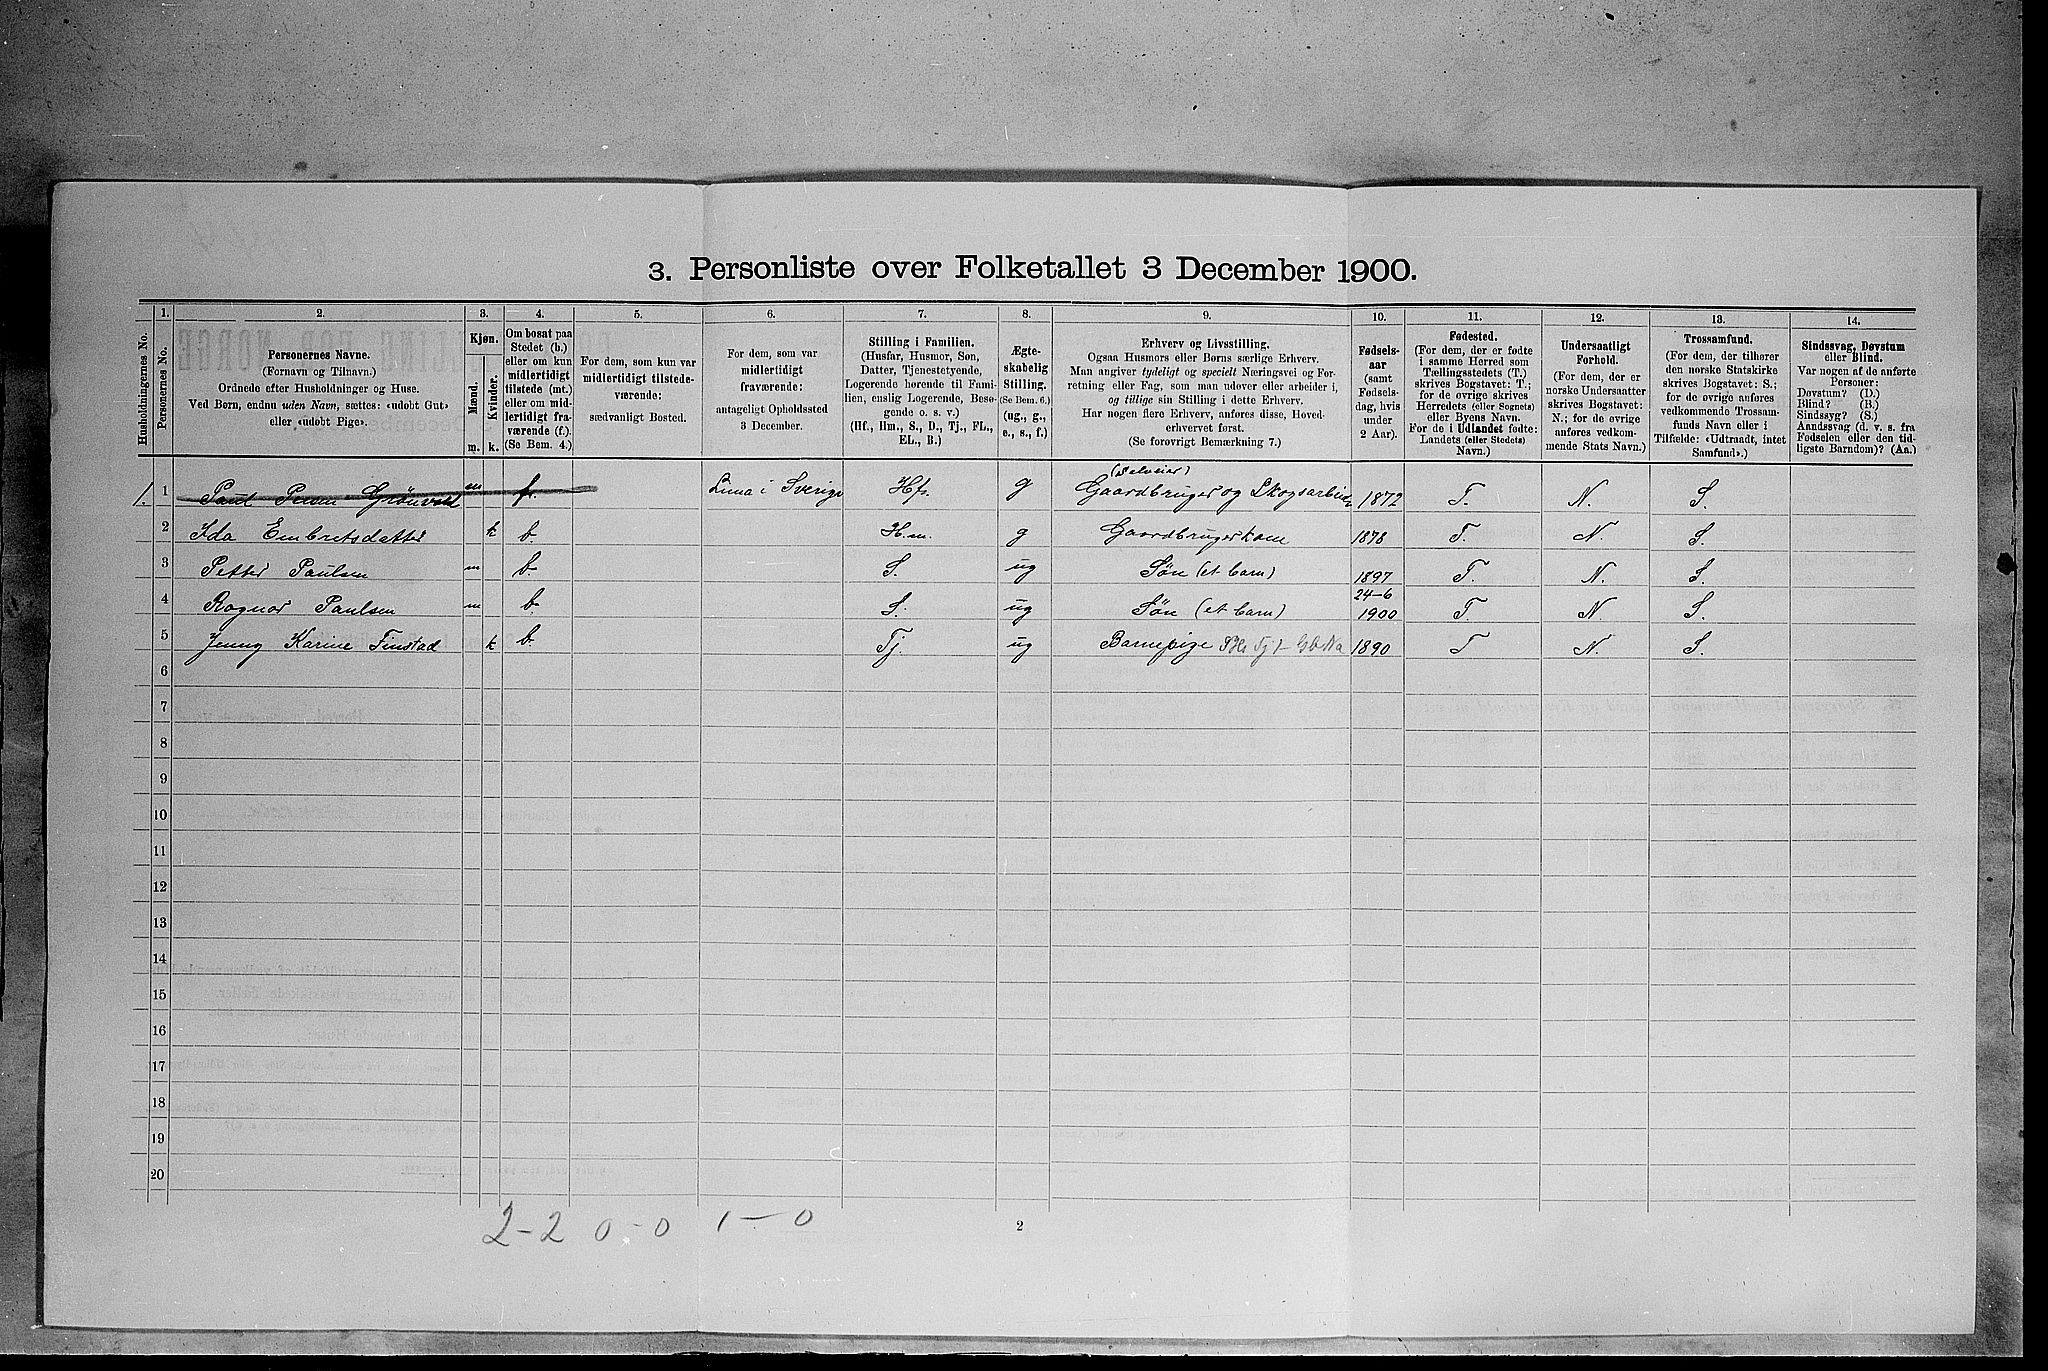 3. Personliste over Folketallet 3 December 1900.
Husholdningernes No.
1.
Personernes No.
2.
Personernes Navne.
(Fornavn og Tilnavn.)
Ordnede efter Husholdninger og Huse.
Ved Børn, endnu uden Navn, sættes: «udøbt Gut»
eller «udøbt Pige».
3.
Kjøn.
Mænd.
Kvinder.
m.
k.
4.
Om bosat paa
Stedet (b.)
eller om kun
midlertidigt
tilstede (mt.)
eller om mid-
lertidigt fra-
værende (f.).
(Se Bem. 4.)
5.
For dem, som kun var
midlertidigt tilstede-
værende:
sædvanligt Bosted.
6.
For dem, som var
midlertidigt
fraværende:
antageligt Opholdssted
3 December.
7.
Stilling i Familien.
(Husfar, Husmor, Søn,
Datter, Tjenestetyende,
Logerende hørende til Fami-
lien, enslig Logerende, Besø-
gende o. s. v.)
(Hf., Hm., S., D., Tj., FL.,
EL., B.)
8.
Ægte-
skabelig
Stilling.
(Se Bem. 6.)
(ug., g.,
e., s., f.)
9.
Erhverv og Livsstilling.
Ogsaa Husmors eller Børns særlige Erhverv.
Man angiver tydeligt og specielt Næringsvei og For-
retning eller Fag, som man udøver eller arbeider i,
og tillige sin Stilling i dette Erhverv.
Har nogen flere Erhverv, anføres disse, Hoved-
erhvervet først.
(Se forøvrigt Bemærkning 7.)
10.
Fødsels-
aar
(samt
Fødsels-
dag, hvis
under
2 Aar).
11.
Fødested.
(For dem, der er fødte
i samme Herred som
Tællingsstedets (T.)
skrives Bogstavet: T.;
for de øvrige skrives
Herredets (eller Sognets)
eller Byens Navn.
For de i Udlandet fødte:
Landets (eller Stedets)
Navn.)
12.
Undersaatligt
Forhold.
(For dem, der er
norske Undersaatter
skrives Bogstavet:
N.; for de øvrige
anføres vedkom-
mende Stats Navn.)
13.
Trossamfund.
(For dem, der tilhører
den norske Statskirke
skrives Bogstavet: S.;
for de øvrige anføres
vedkommende Trossam-
funds Navn eller i
Tilfælde: «Udtraadt, intet
Samfund».)
14.
Sindssvag, Døvstum
eller Blind.
Var nogen af de anførte
Personer:
Døvstum? (D.)
Blind? (B.)
Sindssyg? (S.)
Aandssvag (d. v. s. fra
Fødselen eller den tid-
ligste Barndom)? (Aa.)
(Selveier)
1. 1 Paul Grönvold m f. Lima i Sverige Hf. g Gaardbruger og Skogsarbeider 1872 T. N. S.
2 Ida Embretsdatter k b. H.m. g Gaardbrugerkone 1878 T. N. S.
3 Petter Paulsen m b. S. ug Søn (et barn) 1897 T. N. S.
24-6
4 Ragnar Paulsen m b. S. ug Søn (et barn) 1900 T. N. S.
5 Jenny Karine Finstad k b. Tj. ug Barnepige 1890 T N. S.
6
7
8
9
10
11
12
13
14
15
16
17
18
19
20
2-2 0-0 1-0
2